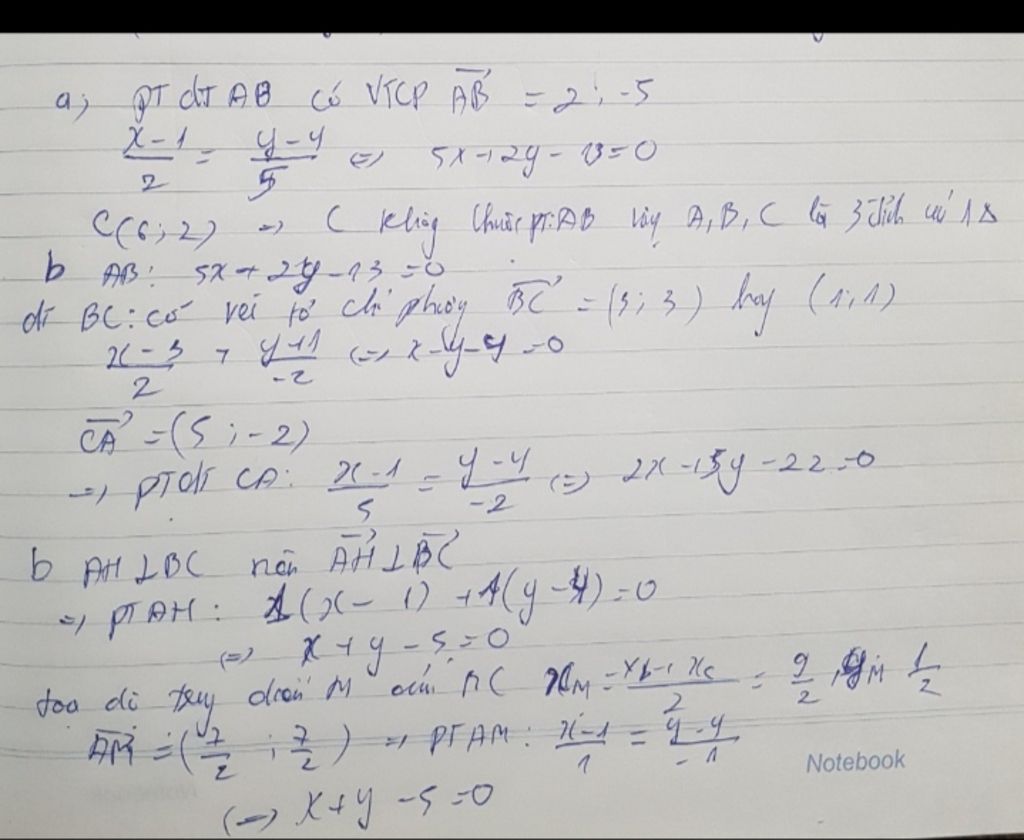 a; PT dT AB có VTCP AB = 2; -5
x-1/2 = y-4/5 <=> 5x+2y-13=0
C(6;2) => C không thuộc pt:AB vậy A, B, C là 3 đỉnh của 1 Δ
b AB: 5x+2y-13=0
dt BC: có véc tơ chỉ phương BC = (3; 3) hay (1; 1)
x-3/2 = y+1/-2 <=> x-y-4=0
CA = (5; -2)
=> PT dt CA: x-1/5 = y-4/-2 <=> 2x+5y-22=0
b AH⊥BC nên AH⊥BC
=> PT AH: 1(x-1) +1(y-4)=0
<=> x+y-5=0
toạ độ M của BC xM = xb+xc/2 = 9/2, yM 1/2
AM = (7/2; 7/2) => PT AM: x-1/1 = y-4/-1
Notebook
<=> x+y-5=0